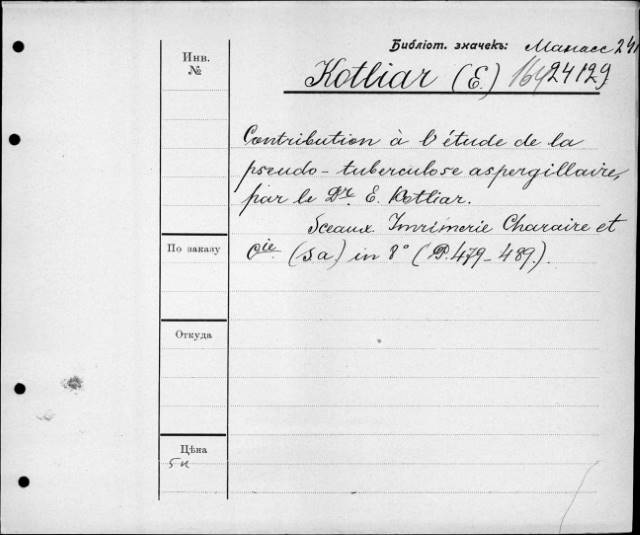 Библіот. значекъ: Манасс 241
Инв.
№
Kotliar (E.) 164 24129
Contribution à l'étude de la
pseudo-tuberculose aspergillaire,
par le Dr. E. Kotliar.
Sceaux Imrimerie Charaire et
Cie. (s.a) in 8° (P. 479-489.).
По заказу
Откуда
Цѣна
5к